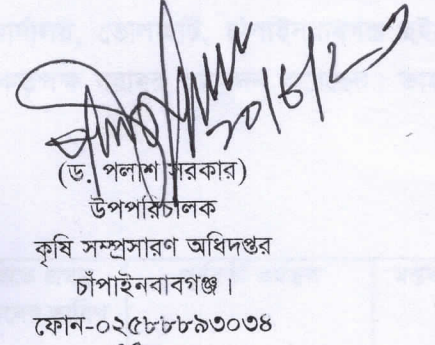 (ড. পলাশ সরকার)
উপপরিচালক
কৃষি সম্প্রসারণ অধিদপ্তর
চাঁপাইনবাবগঞ্জ।
ফোন-০২৫৮৮৮৯৩০৩৪